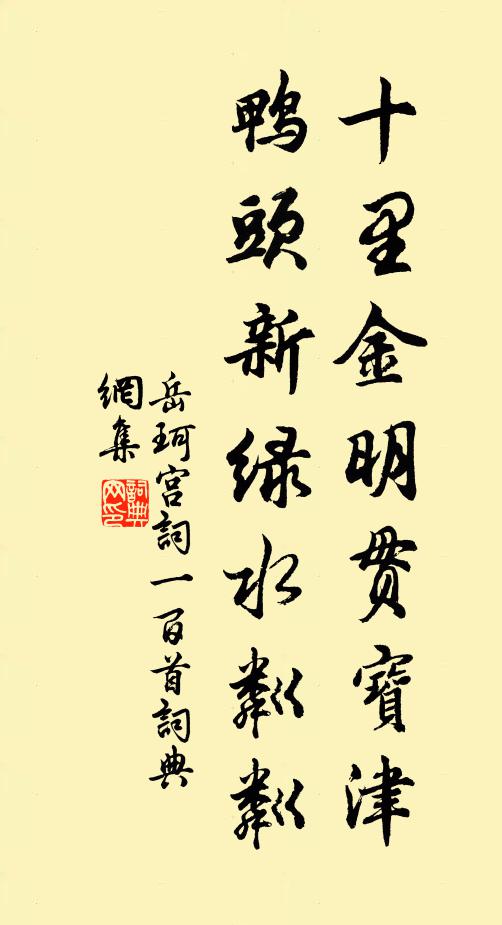 十里金明貫寶津
鴨頭新绿水粼粼
岳珂宮詞一百首詞典
網集
詞典
网印